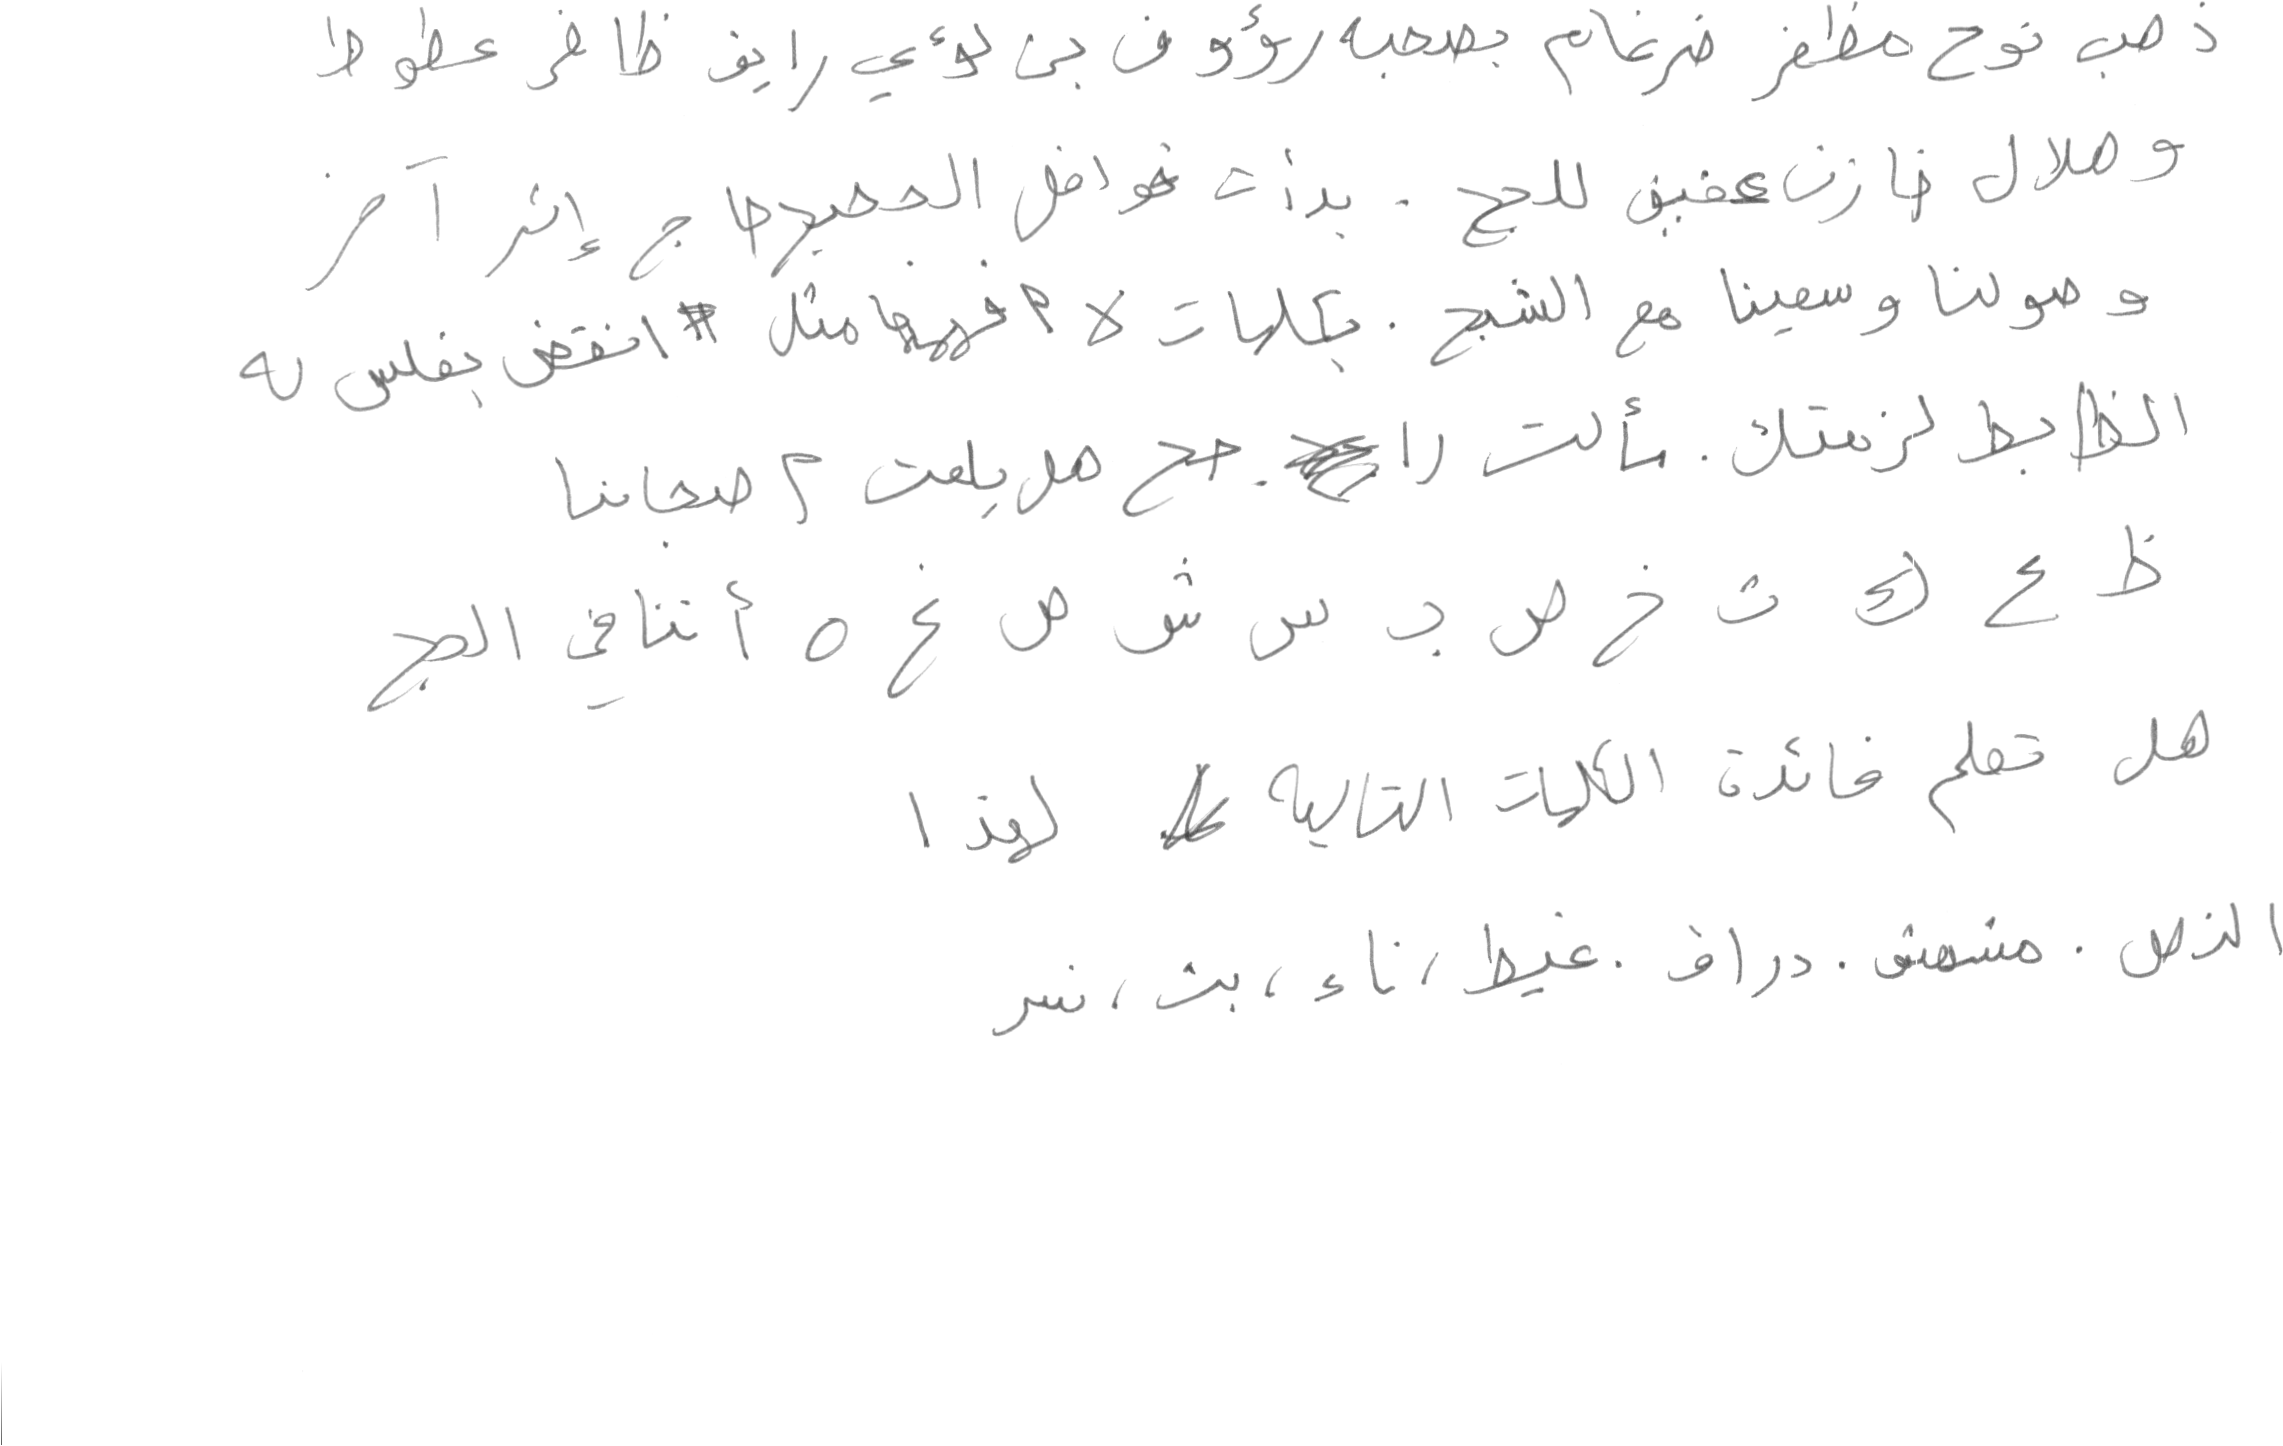 ذهب نوح مظفر ضرغام بصحبه رؤوف بن لؤي رايف ظافر عطوط
وهلال خازن عفيف للحج . بدأت قوافل الحجيج حاج إثر آخر
وصولنا وسعينا مع الشيخ . بكلمات لا افهمها مثل انقض بفلس له
الظابط لزمتك . سألت راجح هل بلعت
ظ ع ك ث خ ص ب س ش ص غ ه أتنافي الحج
هل تعلم فائدة الكلمات التالية لهذا
النص . مشمش . دراق . غيط ، ناء ، بث ، نسر